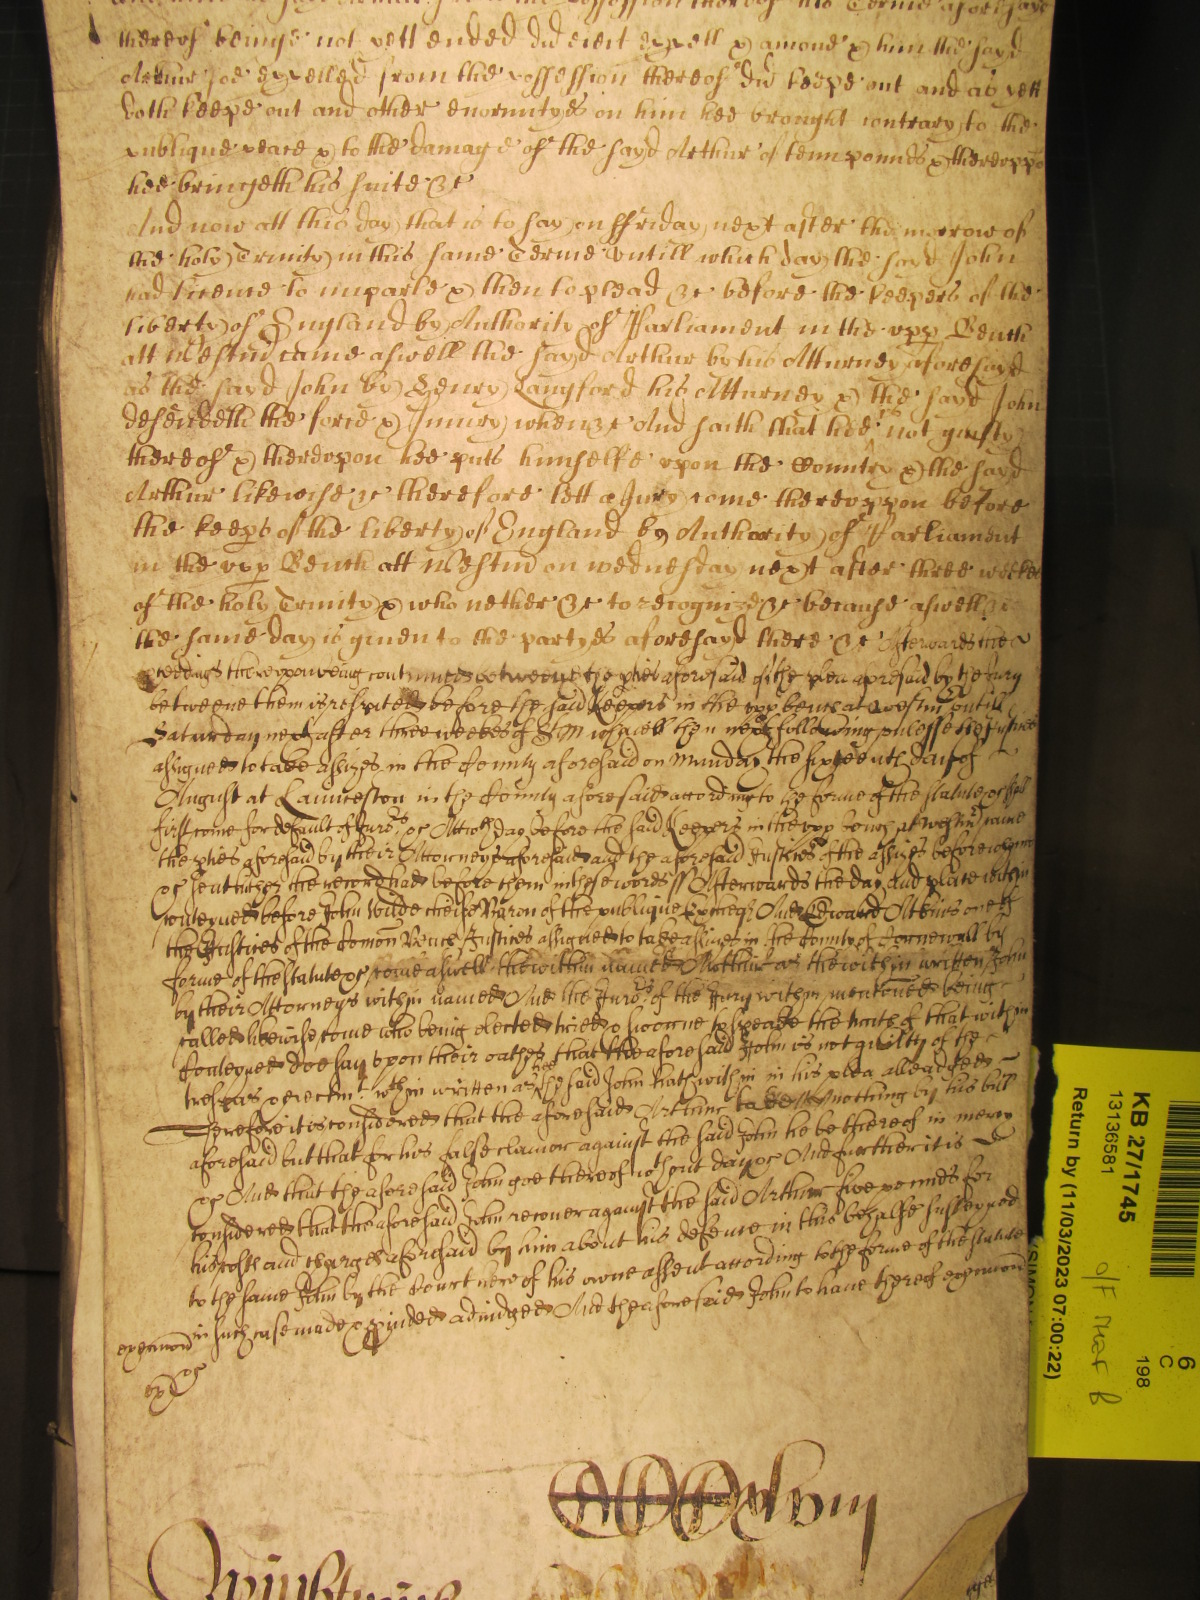 thereof beinge not yett ended did eiect expell & amove & him the sayd
Arthur soe expelled from the possession thereof did keepe out and as yett
doth keepe out and other enormityes on him hee brought contrary to the
publique peace & to the damage of the sayd Arthur of tenn pounds & thereuppo
hee bringeth his suite &c
And now att this day that is to say on ffriday next after the morrow of
the holy Trinity in this same Terme untill which day the sayd John
had licence to imparle & then to plead &c before the keepers of the
liberty of England by Authority of Parliament in the upp Bench
att Westm came aswell the sayd Arthur by his Atturney aforesayd
as the sayd John by Henry Langford his Atturney & the sayd John
defendeth the force & Iniury when &c And saith that hee is not guilty
thereof & thereupon hee puts himselfe upon the Country & the sayd
Arthur likewise &c therefore lett a Jury come thereuppon before
the keeps of the liberty of England by Authority of Parliament
in the upp Bench att Westm on wednesday next after three weekes
of the holy Trinity & who nether &c to recognize &c because aswell &c
the same day is given to the partyes aforesayd there &c Afterwards the
p'ceedings thereupon being continued betweene the p'ties aforesaid of the plea aforesaid by the Jury
betweene them is respited before the said Keepers in the upp bench at Westm untill
Saturday next after three weekes of St Michaell then next following unlesse the Justices
assigned to take assizes in the County aforesaid on Munday the sixteenth day of
August at Launceston in the County aforesaid according to the forme of the statute &c shall
first come for default of Juro's &c Att wch day before the said Keepers in the upp bench at Westm came
the p'ties aforesaid by their Attorneys aforesaid and the aforesaid Justices of the assizes before whome
&c sent hither the record had before them in these words ss Afterwards the day and place within
conteyned before John Wilde cheife Baron of the publique Excheqr And Edward Atkins one of
the Justices of the Comon Bench Justices assigned to take assizes in the County of Cornewall by
forme of the statute &c come aswell the within named Arthur as the within written John
by their Attorneys within named And the Juro's of the Jury within mentioned being
called likewise come who being elected tried & sworne to speake the truth of that within
Conteyned doe say upon their oathes that the aforesaid John is not guilty of the
trespas & eiectmt within written as the said John hath within in his plea alleadged
Therefore it is considered that the aforesaid Arthur take nothing by his bill
aforesaid but that for his false clamor against the said John he be thereof in mercy
&c And that the aforesaid John goe thereof without day &c And further it is
considered that the aforesaid John recover against the said Arthur five pounds for
his costs and charges aforesaid by him about his defence in this behalfe susteyned
to the same John by the Court here of his owne assent according to the forme of the statute
in such case made & p'vided adiudged And the aforesaid John to have thereof execucion
execucion
&c
KB 27/1745
13136581
Return by (11/03/2023 07:00:22)
6
C
198